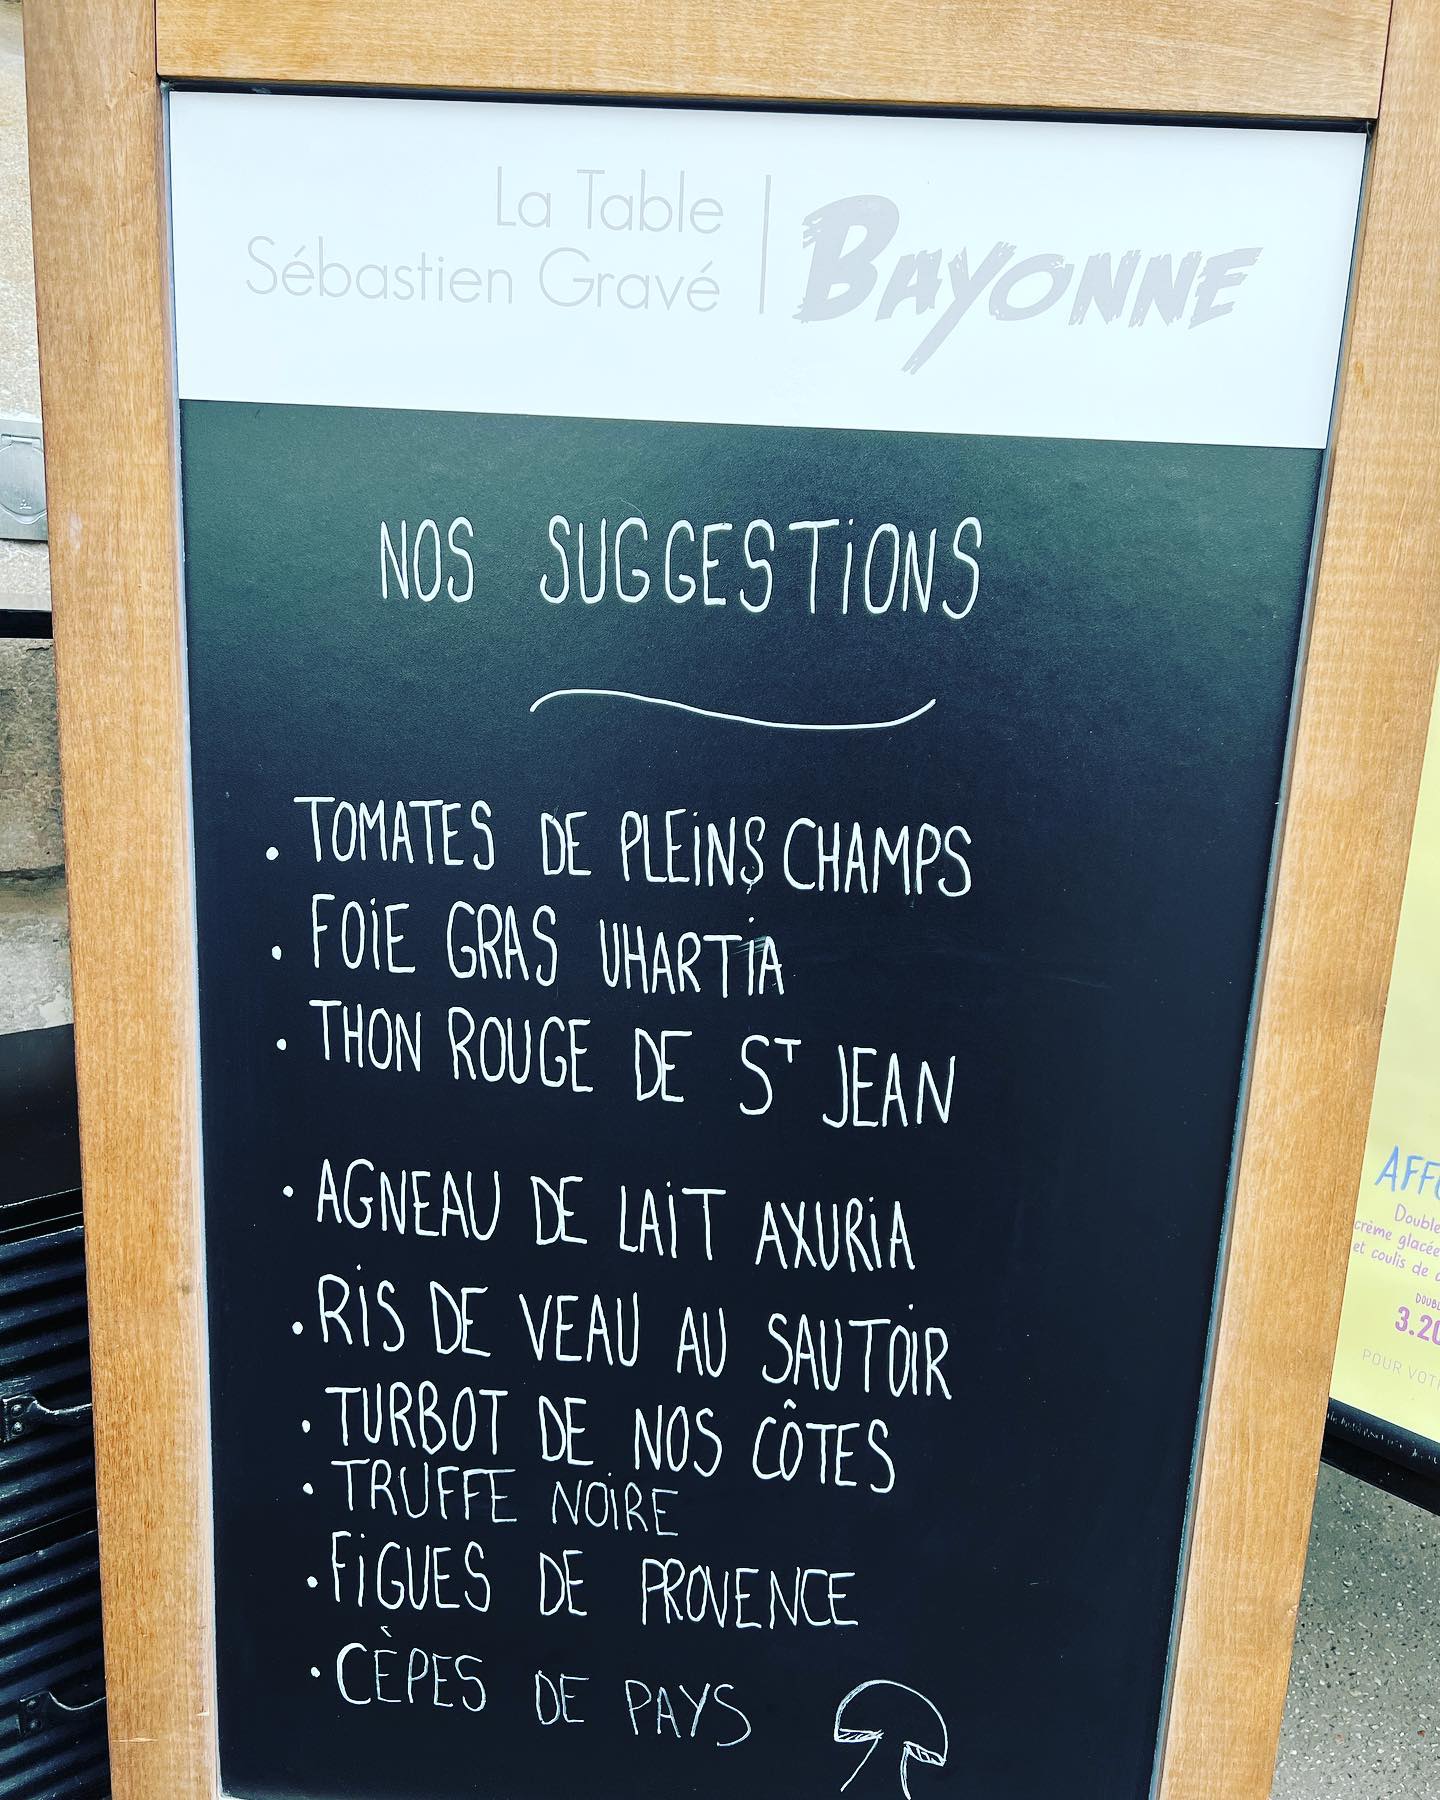 La Table
Sébastien Gravé
BAYONNE
NOS SUGGESTIONS
. TOMATES DE PLEINS CHAMPS
. FOIE GRAS UHARTIA
. THON ROUGE DE ST JEAN
. AGNEAU DE LAIT AXURIA
. RIS DE VEAU AU SAUTOIR
. TURBOT DE NOS CÔTES
. TRUFFE NOIRE
. FIGUES DE PROVENCE
. CÈPES DE PAYS
Double
crème glacée
et coulis de
3.20
POUR